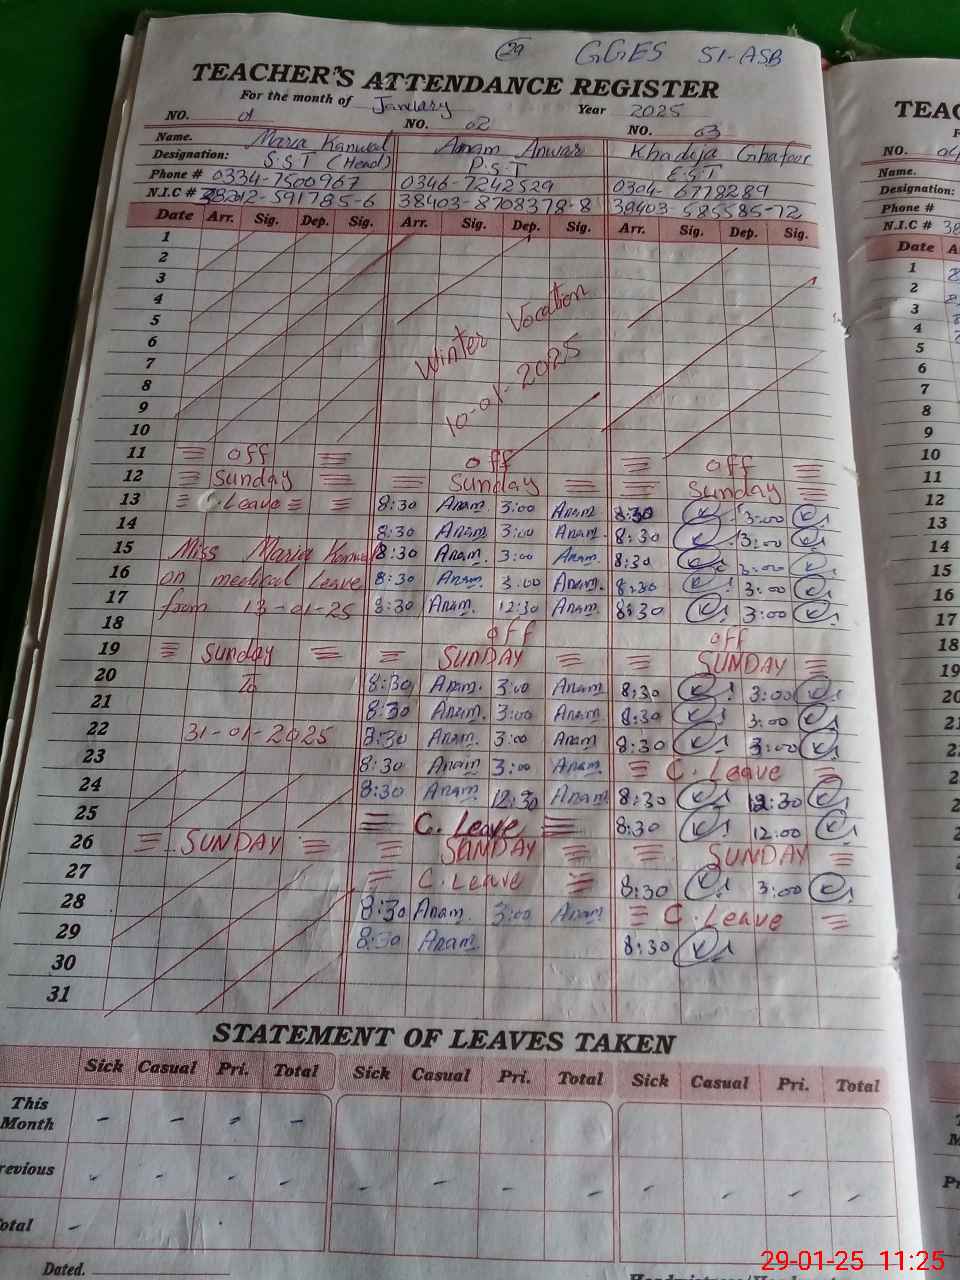 29 GGES 51-ASB
TEACHER'S ATTENDANCE REGISTER
For the month of January Year 2025
NO. 01 NO. 02 NO. 03
Name. Maria Kanwal Anam Anwar Khadija Ghafoor
Designation: S.S.T (Head) P.S.T E.S.T
Phone # 0334-7500967 0346-7242529 0304-6779289
N.I.C # 38403-8708378-8
Date Arr. Sig. Dep. Sig. Arr. Sig. Dep. Sig. Arr. Sig. Dep. Sig.
1
2
3
4 Winter Vocation
5
6
7 10-01-2025
8
9
10
11 off off off
12 Sunday Sunday Sunday
13 C.Leave 8:30 Anam 3:00 Anam 8:30 3:00
14 8:30 Anam 3:00 Anam. 8:30 3:00
15 Miss Maria Kanwal 8:30 Anam. 3:00 Anam. 8:30 3:00
16 on medical Leave 8:30 Anam. 3:00 Anam. 8:30 3:00
17 from 13-01-25 8:30 Anam. 12:30 Anam. 8:30 3:00
18 off off
19 Sunday SUNDAY SUNDAY
20 To 8:30 Anam. 3:00 Anam 8:30 3:00
21 8:30 Anam. 3:00 Anam 8:30 3:00
22 31-01-2025 8:30 Anam 3:00 Anam 8:30 3:00
23 8:30 Anam 3:00 Anam. C.Leave
24 8:30 Anam 12:30 Anam 8:30 12:30
25 C.Leave 8:30 12:00
26 SUNDAY SUNDAY SUNDAY
27 C.Leave 8:30 3:00
28 8:30 Anam. 3:00 Anam C.Leave
29 8:30 Anam. 8:30
30
31
STATEMENT OF LEAVES TAKEN
Sick Casual Pri. Total Sick Casual Pri. Total Sick Casual Pri. Total
This
Month - - - -
revious - - - - - - - - - - - -
otal -
Dated.
TEAC
NO. 04
Name.
Designation:
Phone #
N.I.C # 38
Date A
1
2
3
4
5
6
7
8
9
10
11
12
13
14
15
16
17
18
19
20
21
29-01-25 11:25